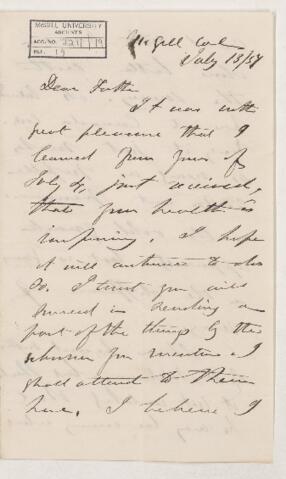 McGILL UNIVERSITY
ARCHIVES
ACC. NO. 221 / 19
REF. 19
McGill Col
July 13/57
Dear Father
It was with
great pleasure that I
learned from yours of
July 4, just received,
that your health is
improving. I hope
it will continue to do
so. I trust you will
succeed in sending a
part of the things by the
schooner you mention & I
shall attend to them
here. I believe I